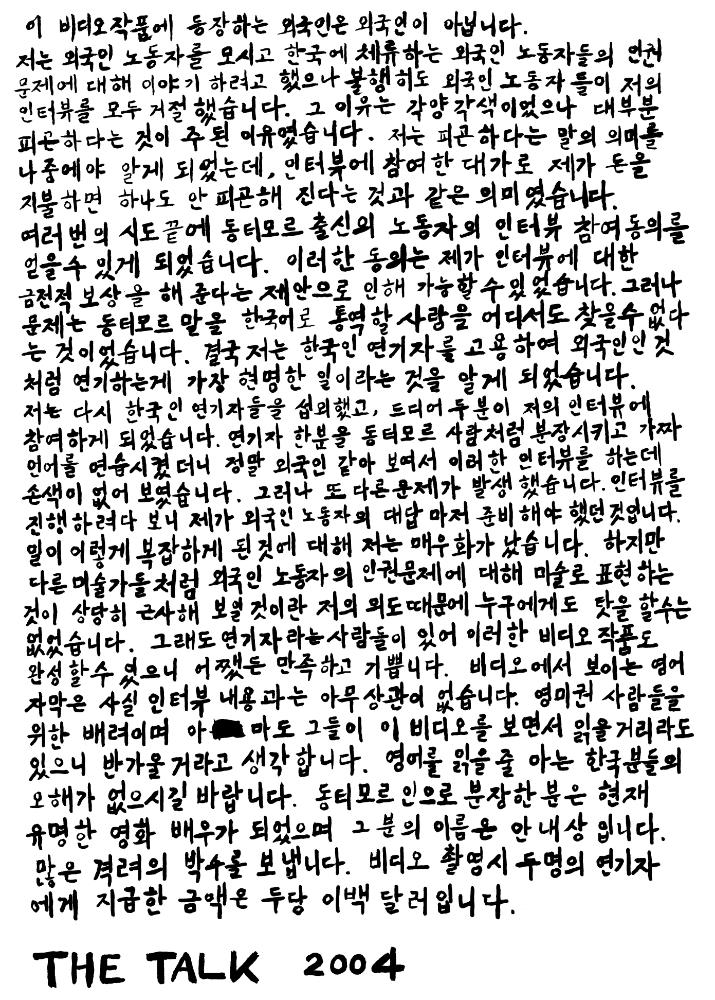 이 비디오작품에 등장하는 외국인은 외국인이 아닙니다.
저는 외국인 노동자를 모시고 한국에 체류하는 외국인 노동자들의 인권
문제에 대해 이야기 하려고 했으나 불행히도 외국인 노동자 들이 저의
인터뷰를 모두 거절 했습니다. 그 이유는 각양 각색이었으나 대부분
피곤하다는 것이 주된 이유였습니다. 저는 피곤 하다는 말의 의미를
나중에야 알게 되었는데, 인터뷰에 참여한 대가로 제가 돈을
지불하면 하나도 안 피곤해 진다는 것과 같은 의미였습니다.
여러번의 시도 끝에 동티모르 출신의 노동자의 인터뷰 참여동의를
얻을수 있게 되었습니다. 이러한 동의는 제가 인터뷰에 대한
금전적 보상을 해 준다는 제안으로 인해 가능할수 있었습니다. 그러나
문제는 동티모르 말을 한국어로 통역할 사람을 어디서도 찾을수 없다
는 것이었습니다. 결국 저는 한국인 연기자를 고용하여 외국인인 것
처럼 연기하는게 가장 현명한 일이라는 것을 알게 되었습니다.
저는 다시 한국인 연기자들을 섭외했고, 드디어 두분이 저의 인터뷰에
참여하게 되었습니다. 연기자 한분을 동티모르 사람처럼 분장시키고 가짜
언어를 연습시켰더니 정말 외국인 같아 보여서 이러한 인터뷰를 하는데
손색이 없어 보였습니다. 그러나 또 다른 문제가 발생 했습니다. 인터뷰를
진행하려다 보니 제가 외국인 노동자의 대답 마저 준비해야 했던것입니다.
일이 이렇게 복잡하게 된것에 대해 저는 매우화가 났습니다. 하지만
다른 미술가들 처럼 외국인 노동자의 인권문제에 대해 미술로 표현하는
것이 상당히 근사해 보일 것이란 저의 의도때문에 누구에게도 탓을 할수는
없었습니다. 그래도 연기자라는 사람들이 있어 이러한 비디오 작품도
완성 할수 있으니 어쨌든 만족하고 기쁩니다. 비디오에서 보이는 영어
자막은 사실 인터뷰 내용과는 아무 상관이 없습니다. 영미권 사람들을
위한 배려이며 아마도 그들이 이 비디오를 보면서 읽을거리라도
있으니 반가울거라고 생각합니다. 영어를 읽을줄 아는 한국분들의
오해가 없으시길 바랍니다. 동티모르인으로 분장한 분은 현재
유명한 영화 배우가 되었으며 그 분의 이름은 안내상 입니다.
많은 격려의 박수를 보냅니다. 비디오 촬영시 두명의 연기자
에게 지급한 금액은 두당 이백 달러입니다.
THE TALK 2004